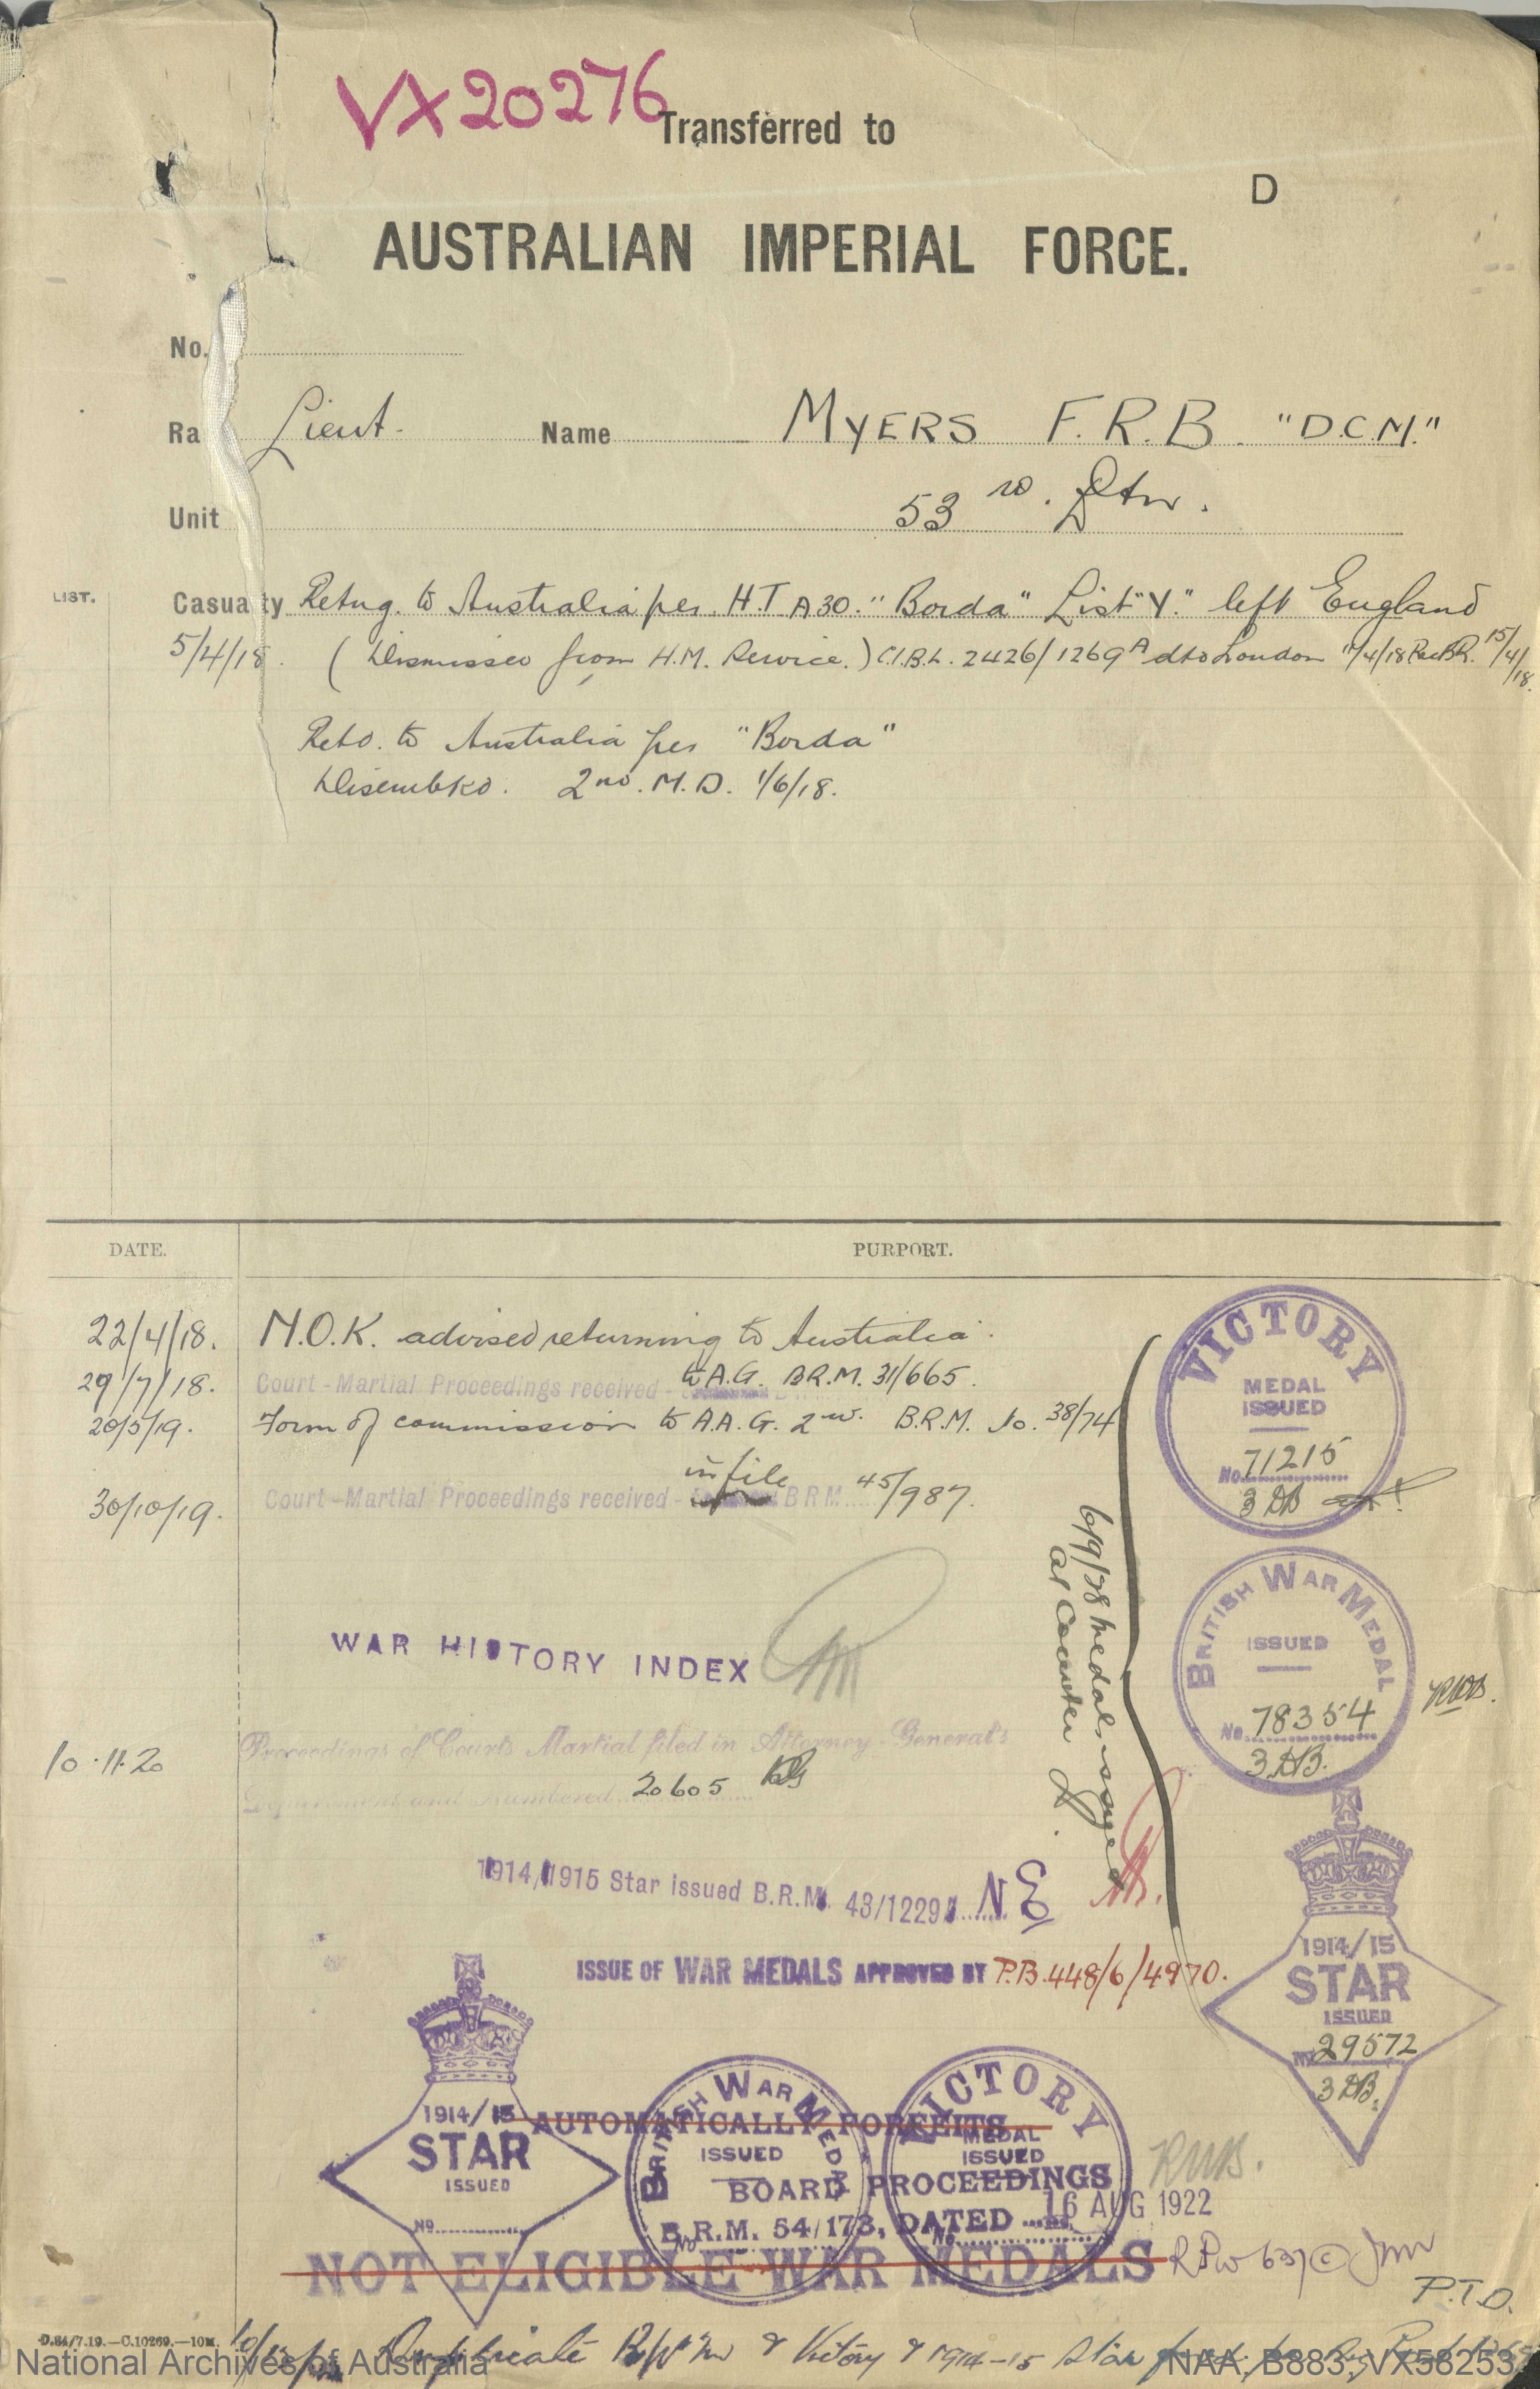 VX20276
Transferred to
D
AUSTRALIAN IMPERIAL FORCE.
No.
Ra Lieut. Name MYERS F.R.B. "D.C.M."
Unit 53rd. Btn.
LIST.
Casualty Retng. to Australia per H.T. A30. "Borda" List "Y." left England
5/4/18. (Dismissed from H.M. Service.) C.I.B.L. 2426/1269A dtd London 11/4/18 Rec BR. 15/4/18.
Retd. to Australia per "Borda"
Disembkd. 2nd. M.D. 1/6/18.
DATE. PURPORT.
22/4/18. N.O.K. advised returning to Australia.
29/7/18. Court-Martial Proceedings received - to A.G. B.R.M. 31/665.
20/5/19. Form of commission to A.A.G. 2nd. B.R.M. No. 38/74
30/10/19. Court-Martial Proceedings received - in file BRM 45/987.
WAR HISTORY INDEX
10.11.20 Proceedings of Courts Martial filed in Attorney-General's
Department and numbered 20605
VICTORY
MEDAL
ISSUED
No. 71215
3 DB
BRITISH WAR MEDAL
ISSUED
No. 78354
3 DB.
RWB.
6/9/28 medals issued
at Counter
1914/1915 Star issued B.R.M. 43/1229 N.E.
ISSUE OF WAR MEDALS APPROVED BY P.B. 448/6/4970.
1914/15
STAR
ISSUED
No. 29572
3 DB.
1914/15
STAR
ISSUED
No.
BRITISH WAR MEDAL
ISSUED
No.
VICTORY
MEDAL
ISSUED
No.
AUTOMATICALLY FORFEITS
BOARD PROCEEDINGS
B.R.M. 54/173, DATED 16 AUG 1922
RWB.
NOT ELIGIBLE WAR MEDALS
P.T.O.
D.84/7.19.—C.10269.—10M.
Duplicate & Victory & 1914-15 Star
National Archives of Australia
NAA: B883, VX58253